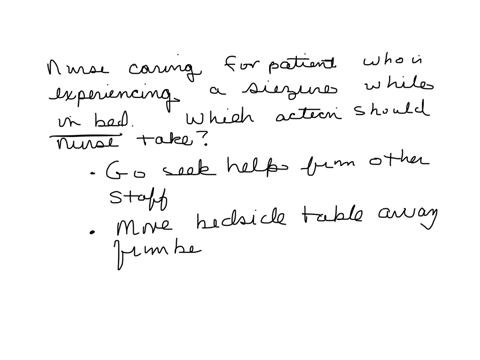 Nurse caring for patient who is
experiencing a siezures while
in bed. Which action should
nurse take?
• Go seek helps from other
staff
• Move bedside table away
from be